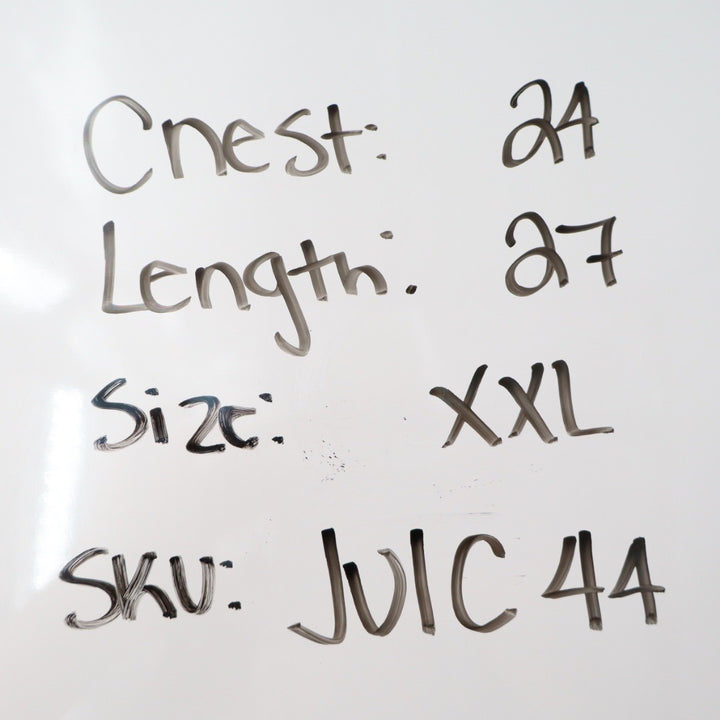 Chest: 24
Length: 27
Size: XXL
SKU: JUIC 44